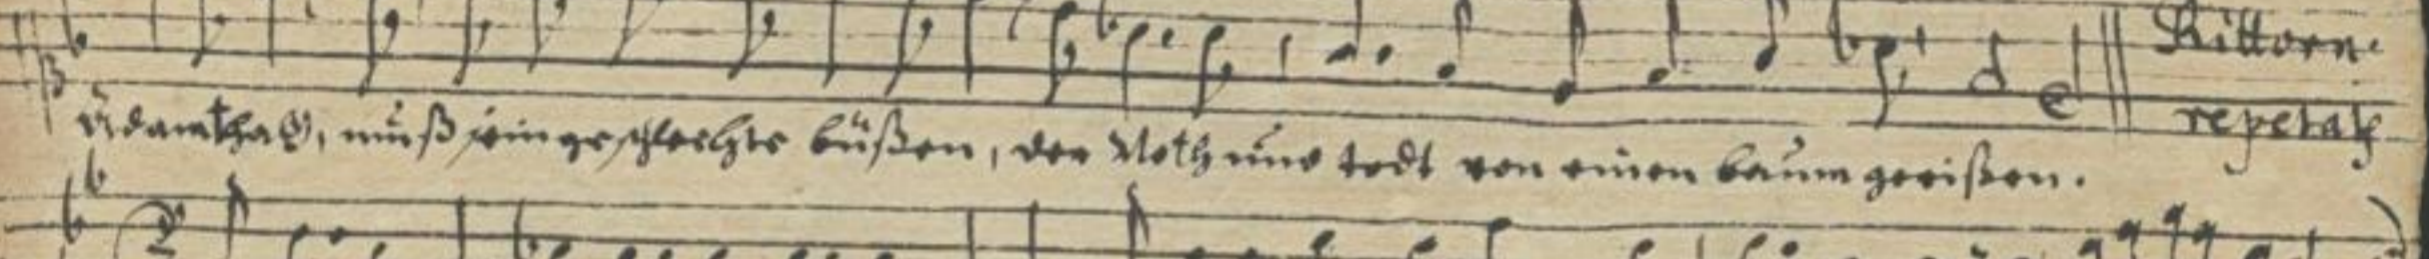 Ritorn.
repetatr
Adam that, muß sein geschlechte büßen, der Noth und todt von einen baum gerißen.